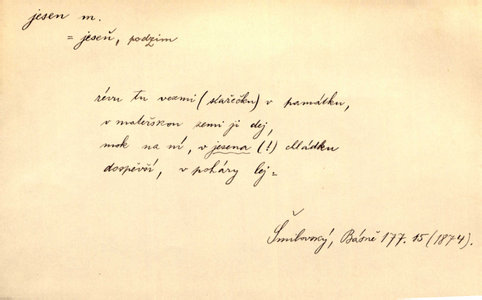 jesen m.
= jeseň, podzim
révu tu vezmi (stařečku) v památku,
v mateřskou zemi ji dej,
mok na ní, v jesena (!) chládku
dospěvší, v poháry lej =
Šmilovský, Básně 177. 15 (1874).